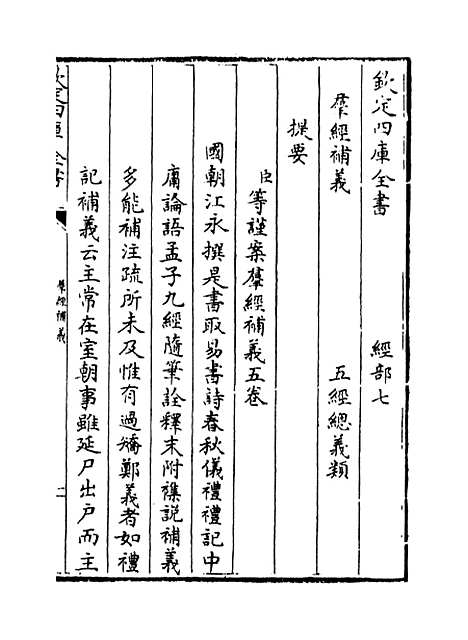 欽定四庫全書　　　經部七
羣經補義　　　五經總義類
提要
臣等謹案羣經補義五卷
國朝江永撰是書取易書詩春秋儀禮禮記中
庸論語孟子九經隨筆詮釋末附襍說補義
多能補注疏所未及惟有過矯鄭義者如禮
記補義云主常在室朝事雖延尸出戶而主
欽定四庫全書
羣經補義
二